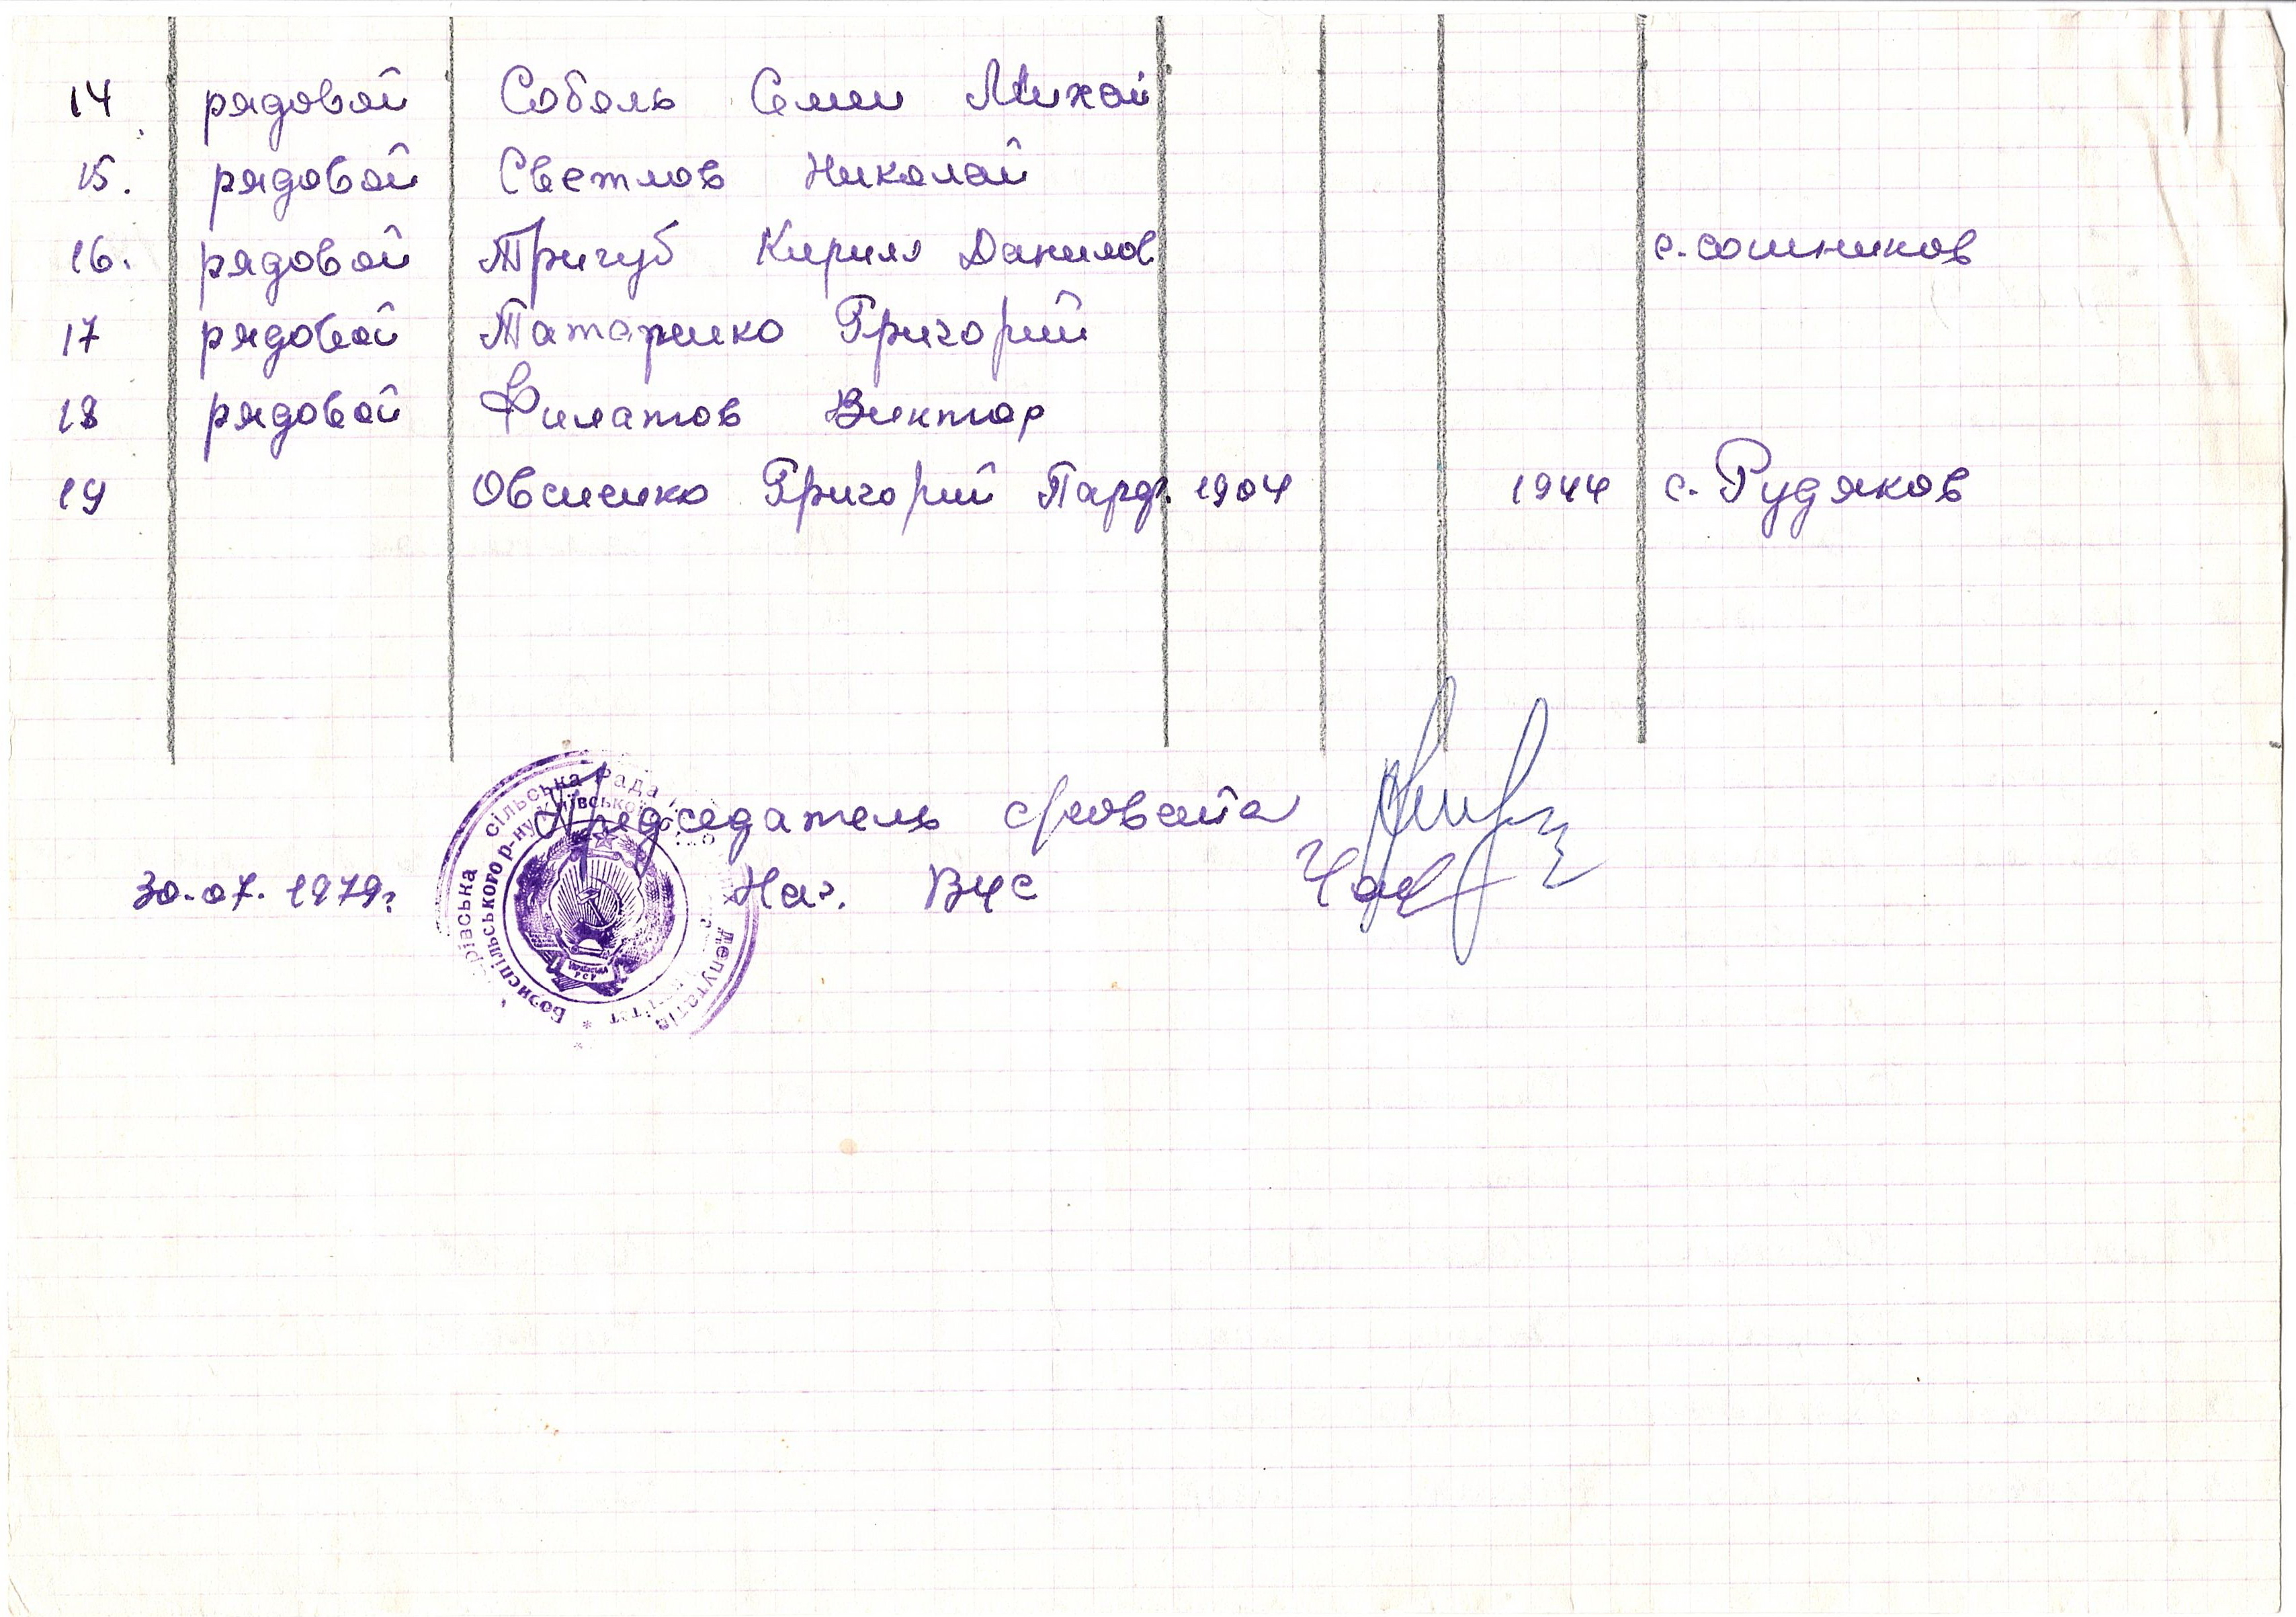 14 рядовой Соболь Семен Михай
15. рядовой Светлов Николай
16. рядовой Тригуб Кирилл Данилов с. сошников
17 рядовой Татаренко Григорий
18 рядовой Филатов Виктор
19 Овсиенко Григорий Парф. 1904 1944 с. Рудяков
сільська Рада депутатів
Бориспільського р-ну Київської
Председатель с/совета
30.07.1979г. Нач. ВУС